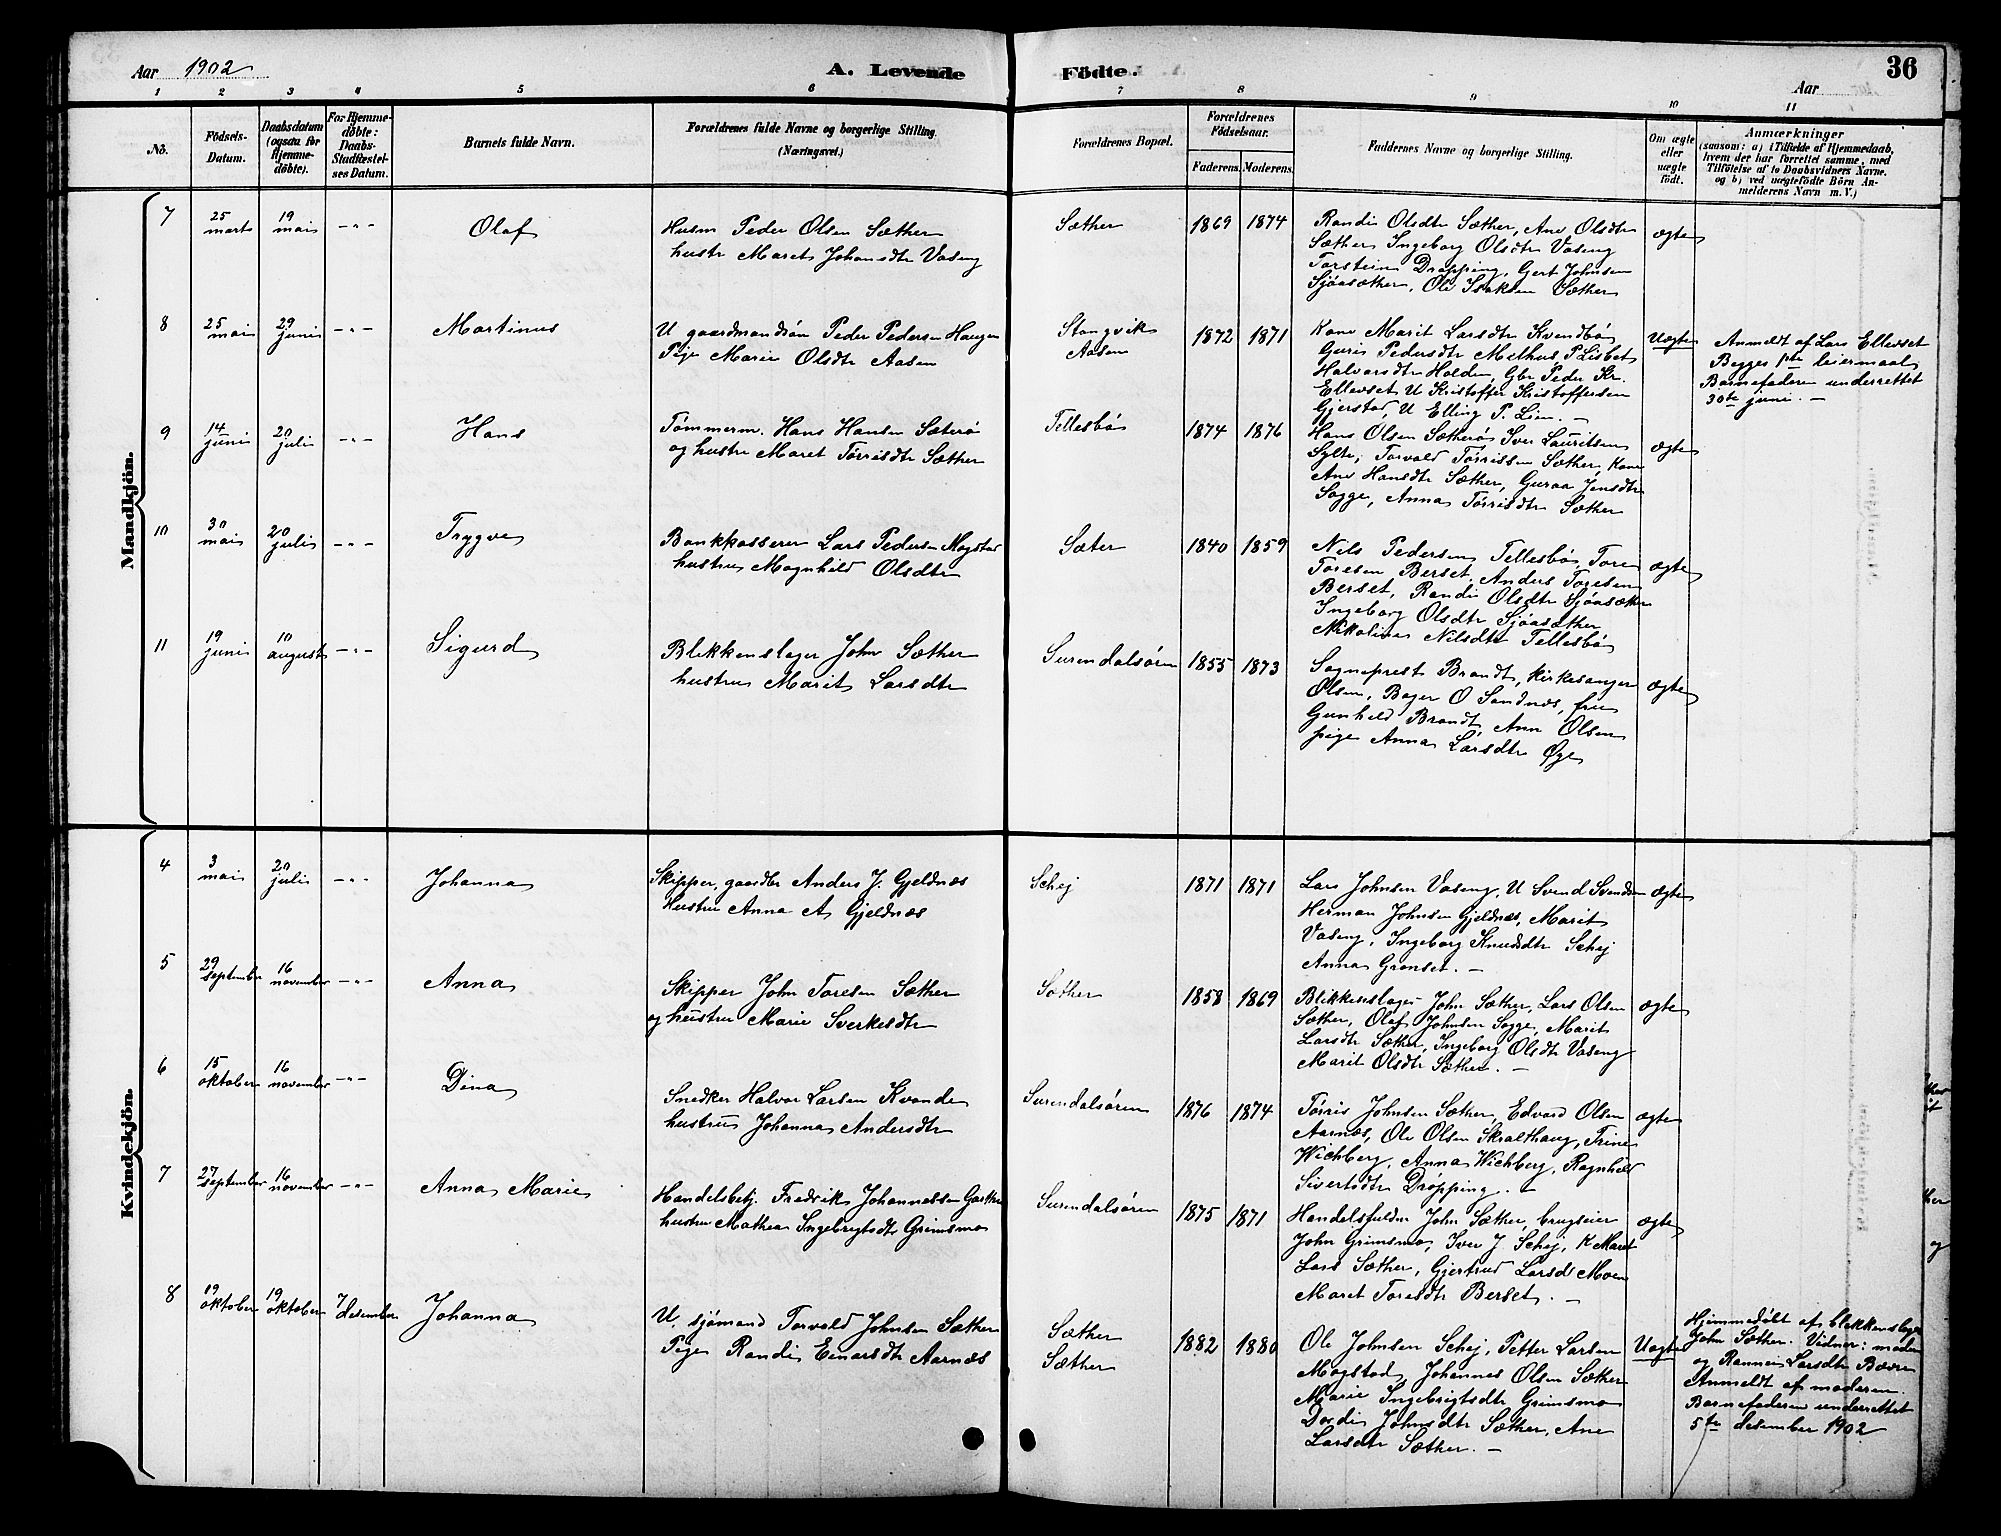 Aar 1902
A. Levende
Födte.
Aar
36
1 2 3 4 5 6 7 8 9 10 11
No.
Födsels-
Datum.
Daabsdatum
(ogsaa for
Hjemme-
döbte).
For Hjemme-
döbte:
Daabs-
Stadfæstel-
ses Datum.
Barnets fulde Navn.
Forældrenes fulde Navne og borgerlige Stilling.
(Næringsvei.)
Forældrenes Bopæl.
Forældrenes
Födselsaar.
Faderens. Moderens.
Faddernes Navne og borgerlige Stilling.
Om ægte
eller
uægte
födt.
Anmærkninger
(saasom: a) i Tilfælde af Hjemmedaab,
hvem der har forrettet samme, med
Tilföielse af to Daabsvidners Navne.
og b) ved uægtefödte Börn An-
melderens Navn m. V.)
Mandkjön.
7
25
marts
19
mai
-"-
Olaf
Husm Peder Olsen Sæther
hustr Maret Johansdtr Vaseng
Sæther
1869
1874
Randi Olsdtr Sæther, Ane Olsdtr
Sæther, Ingeborg Olsdtr Vaseng
Torstein Dröpping, Gert Johnsen
Sjöasæther, Ole Isaksen Sæther
ægte
8
25
mai
29
juni
-"-
Martinus
U gaardmandsön Peder Pedersen Haugen
Pige Marie Olsdtr Aasen
Stangvik
Aasen
1872
1871
Kone Marit Larsdtr Kvendbö
Guri Pedersdtr Melhus P Lisbet
Halvorsdtr Holden, Gbr Peder Kr.
Ellevset U Kristoffer Kristoffersen
Gjerstad, U Elling P. Lien. -
Uægte
Anmeldt af Lars Ellevset
Begges 1ste leiermaal
Barnefaderen underrettet
30te juni. -
9
14
juni
20
julii
-"-
Hans
Tömmerm. Hans Hansen Sæterö
og hustru Maret Törrisdtr Sæther
Tellesbö
1874
1876
Hans Olsen Sætherö, Iver Lauritsen
Sylte, Torvald Törrissen Sæther, Kone
Ane Hansdtr Sæther, Guraa Jensdtr
Sogge, Anna Törrisdtr Sæther
ægte
10
30
mai
20
julii
-"-
Trygve
Bankkasserer Lars Pedersen Mogstad
hustru Magnhild Olsdtr
Sæter
1840
1859
Nils Pedersen Tellesbö, Tore
Toresen Berset, Anders Toresen
Berset, Randi Olsdtr Sjöasæther
Ingeborg Olsdtr Sjöasæther
Nikoline Nilsdtr Tellesbö
ægte
11
19
juni
10
august
-"-
Sigurd
Blikkenslager John Sæther
hustru Marit Larsdtr
Surendalsören
1855
1873
Sogneprest Brandt, Kirkesanger
Olsen, Bager O Sandnæs, fru
Gunhild Brandt, Ane Olsen
pige Anna Larsdtr Øye
ægte
Kvindekjön.
4
3
mai
20
julii
-"-
Johanna
Skipper, gaardbr Anders J. Gjeldnæs
Hustru Anna A Gjeldnæs
Schej
1871
1871
Lars Johnsen Vaseng, U Svend Svendsen
Herman Johnsen Gjeldnæs, Marit
Vaseng, Ingeborg Knudsdtr Schej
Anna Grønset. -
ægte
5
29
september
16
november
-"-
Anna
Skipper John Toresen Sæther
og hustru Marie Sverkesdtr
Sæther
1858
1869
Blikkenslager John Sæther, Lars Olsen
Sæther, Olaf Johnsen Sogge, Marit
Larsdtr Sæther, Ingeborg Olsdtr Vaseng
Marit Olsdtr Sæther. -
ægte
6
15
oktober
16
november
-"-
Dina
Snedker Halvor Larsen Kvande
hustru Johanna Andersdtr
Surendalsören
1876
1874
Törris Johnsen Sæther, Edvard Olsen
Aarnæs, Ole Olsen Skralthaug, Trine
Wichberg, Anna Wichberg, Ragnhild
Sivertsdtr Dröpping. -
ægte
7
27
september
16
november
-"-
Anna Marie
Handelsbetj. Fredrik Johannessen
hustru Mathea Ingebrigtsdtr Grimsmo
Surendalsören
1875
1871
Handelsfuldm John Sæther, brugseier
John Grimsmo, Iver J. Schej, K Maret
Lars Sæther, Gjertrud Larsd Moen
Maret Toresdtr Berset. -
ægte
8
19
oktober
19
oktober
7
desember
Johanna
U. sjömand Torvald Johnsen Sæther
Pige Randi Einarsdtr Aarnæs
Sæther
Sæther
1882
1880
Ole Johnsen Schej, Petter Larsen
Mogstad, Johannes Olsen Sæther
Marie Ingebrigtsdtr Grimsmo
Dordi Johnsdtr Sæther, Ane
Larsdtr Sæther. -
Uægte
Hjemmedöbt af blekkenslager
John Sæther. Vidner: moder
og Rannei Larsdtr Bævre
Anmeldt af moderen.
Barnefaderen underrettet
5te desember 1902